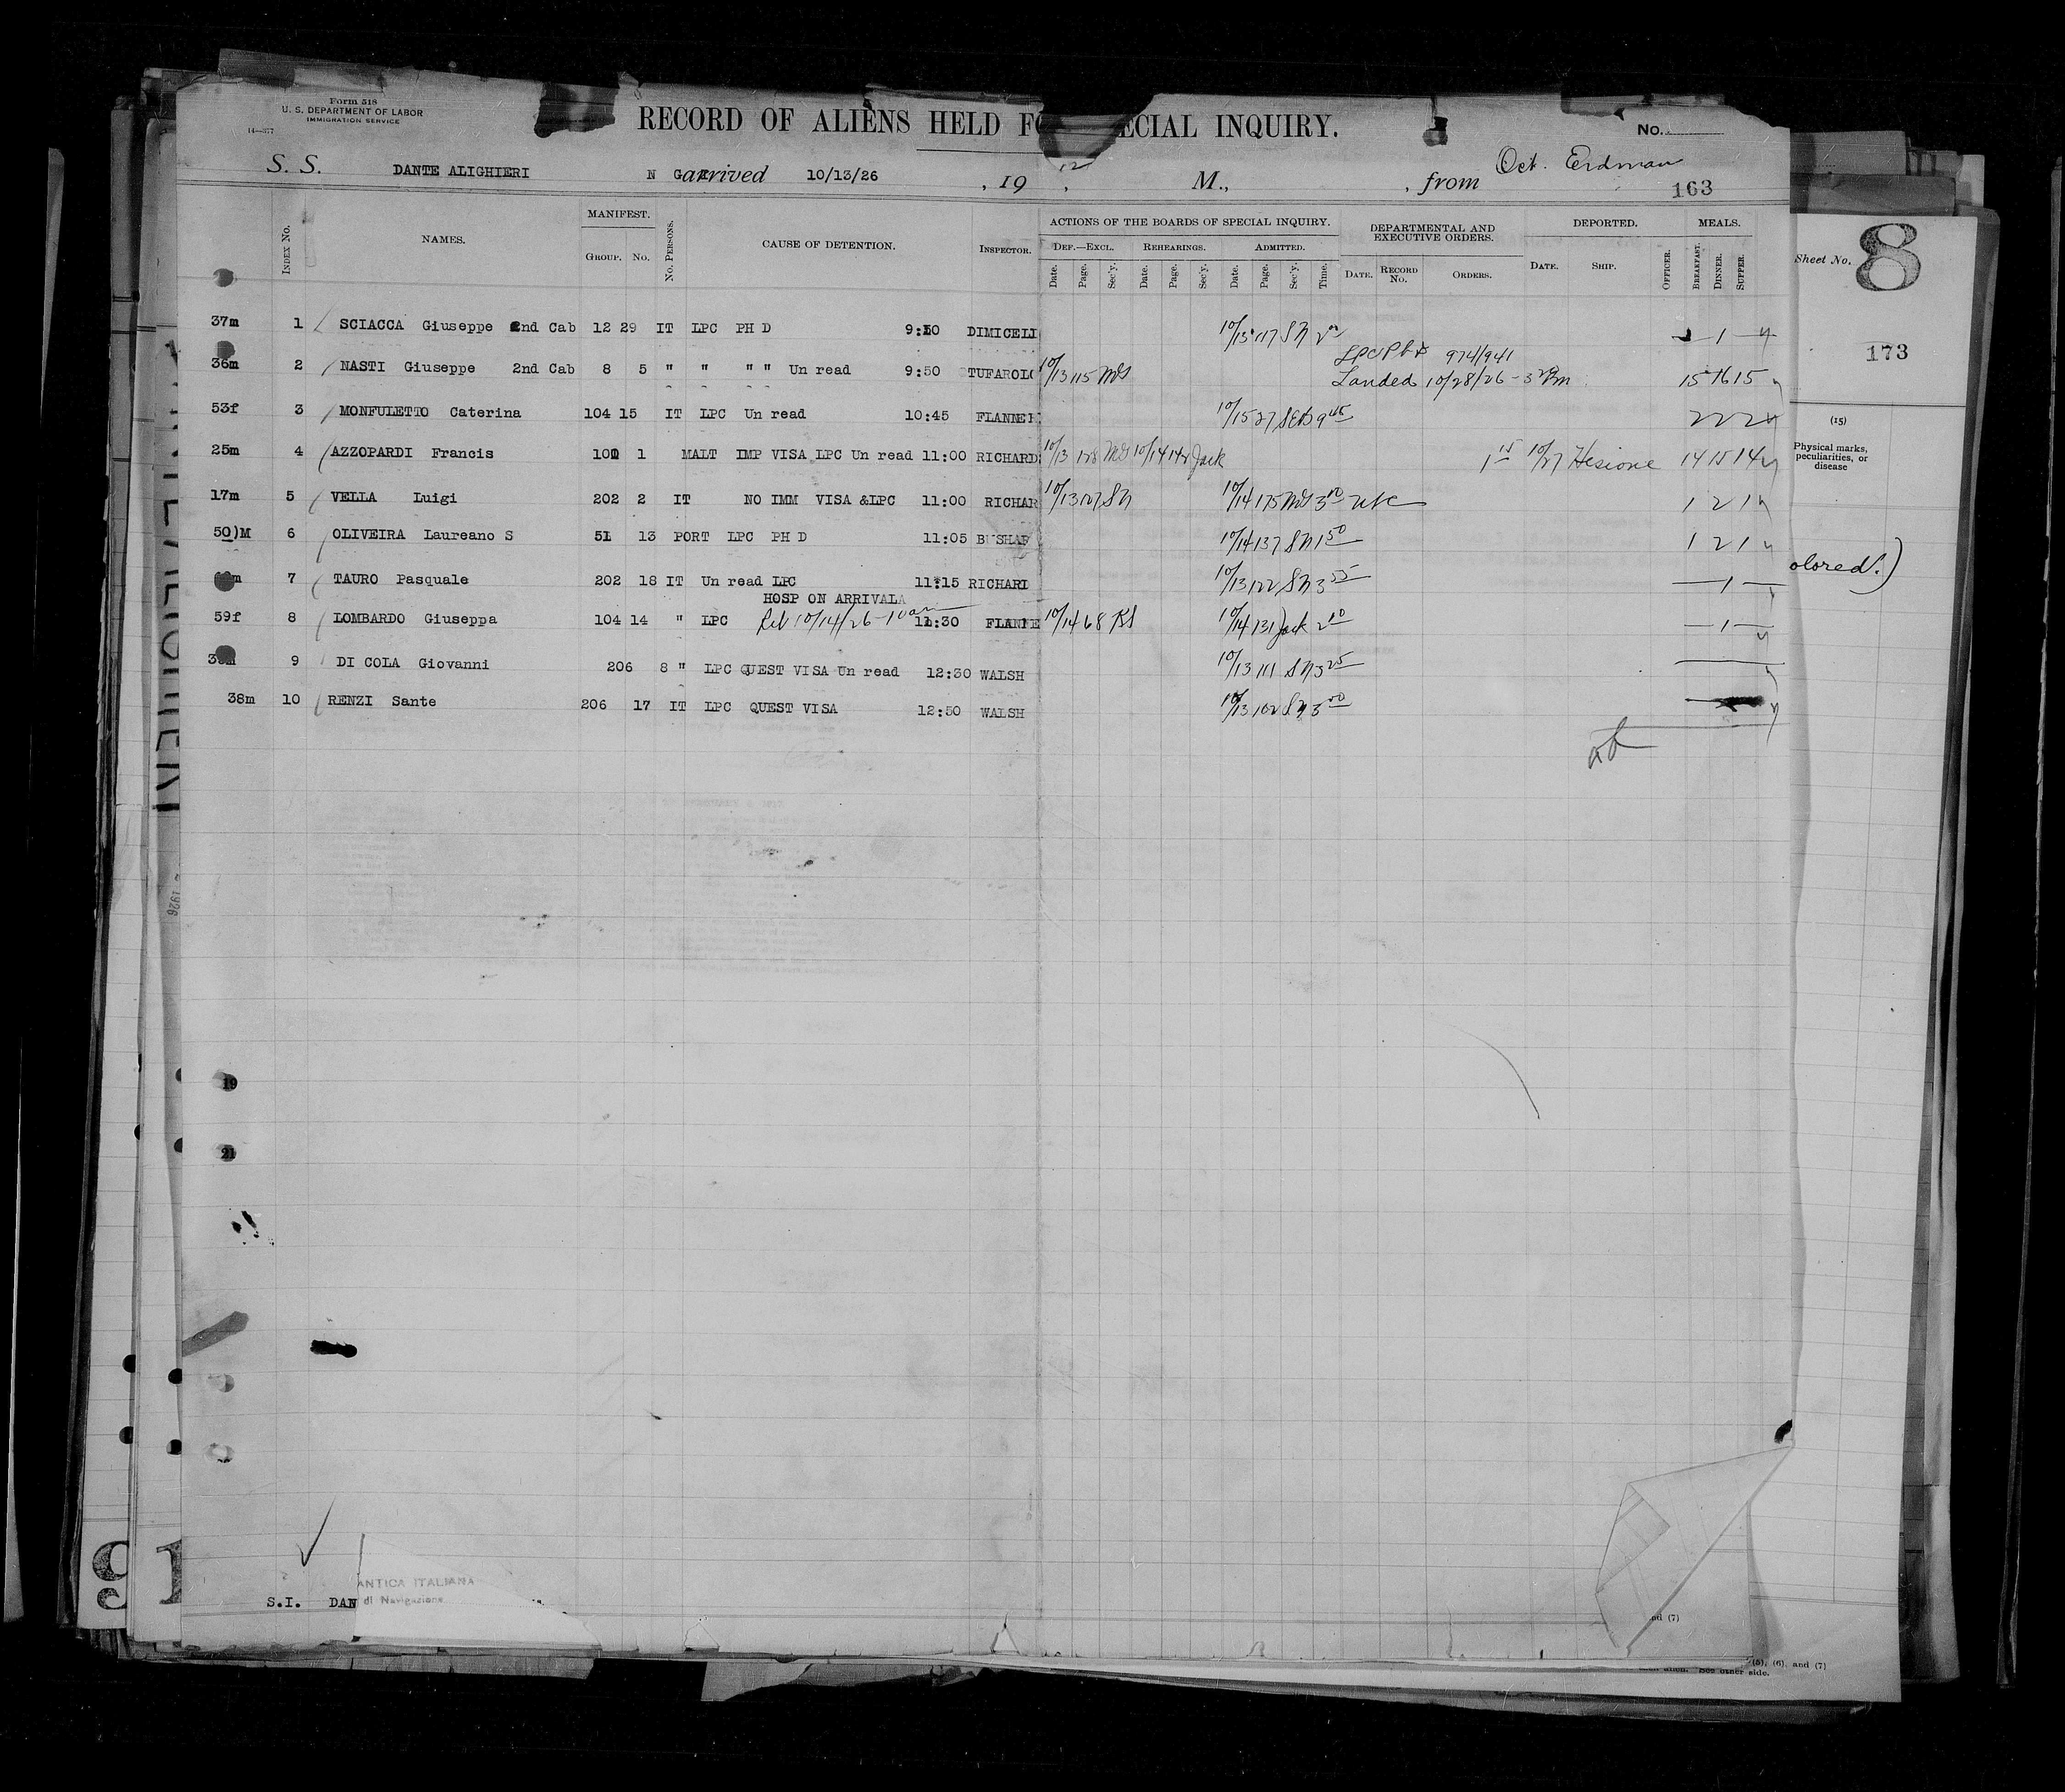 Form 518
U. S. DEPARTMENT OF LABOR
IMMIGRATION SERVICE
14—377
RECORD OF ALIENS HELD FO ECIAL INQUIRY.
No.
S. S. DANTE ALIGHIERI N G arrived 10/13/26 , 19 , 12 M., , from Oct. Erdman
163
INDEX No. NAMES. MANIFEST. GROUP. No. No. PERSONS. CAUSE OF DETENTION. INSPECTOR.
ACTIONS OF THE BOARDS OF SPECIAL INQUIRY. DEPARTMENTAL AND EXECUTIVE ORDERS. DEPORTED. MEALS.
DEF.—EXCL. REHEARINGS. ADMITTED.
Date. Page. Sec'y. Date. Page. Sec'y. Date. Page. Sec'y. Time. DATE. RECORD No. ORDERS. DATE. SHIP. OFFICER. BREAKFAST. DINNER. SUPPER.
37m 1 SCIACCA Giuseppe 2nd Cab 12 29 IT LPC PH D 9:10 DIMICELI 1
974/941
36m 2 NASTI Giuseppe 2nd Cab 8 5 " " " " Un read 9:50 TUFAROLO 10/13 115 Landed 10/28/26 - 15 16 15
53f 3 MONFULETTO Caterina 104 15 IT LPC Un read 10:45 FLANNER 10/15 27 9 45 2 2 2
25m 4 AZZOPARDI Francis 1 MALT IMP VISA LPC Un read 11:00 RICHARD 10/13 128 10/14 142 Jack 10/27 Hesione 14 15 14
17m 5 VELLA Luigi 202 2 IT NO IMM VISA &LPC 11:00 RICHAR 10/13 127 SN 10/14 175 3 00 1 2 1
50)M 6 OLIVEIRA Laureano S 51 13 PORT LPC PH D 11:05 BUSHAR 10/14 137 SN 1 50 1 2 1
7 TAURO Pasquale 202 18 IT Un read LPC 11:15 RICHARD 10/13 122 SN 3 55 1
HOSP ON ARRIVAL
59f 8 LOMBARDO Giuseppa 104 14 " LPC Rel 10/14/26 - 10 am 11:30 FLANNE 10/14 68 10/14 131 Jack 2 10 1
9 DI COLA Giovanni 206 8 " LPC QUEST VISA Un read 12:30 WALSH 10/13 111 SN 3 25
38m 10 RENZI Sante 206 17 IT LPC QUEST VISA 12:50 WALSH 10/13 102 SN 3 00
19
21
S.I. DAN
ANTICA ITALIANA
di Navigazione
Sheet No. 8
173
(15)
Physical marks, peculiarities, or disease
olored.)
nd (7)
(5), (6), and (7)
See other side.
1926
9
1